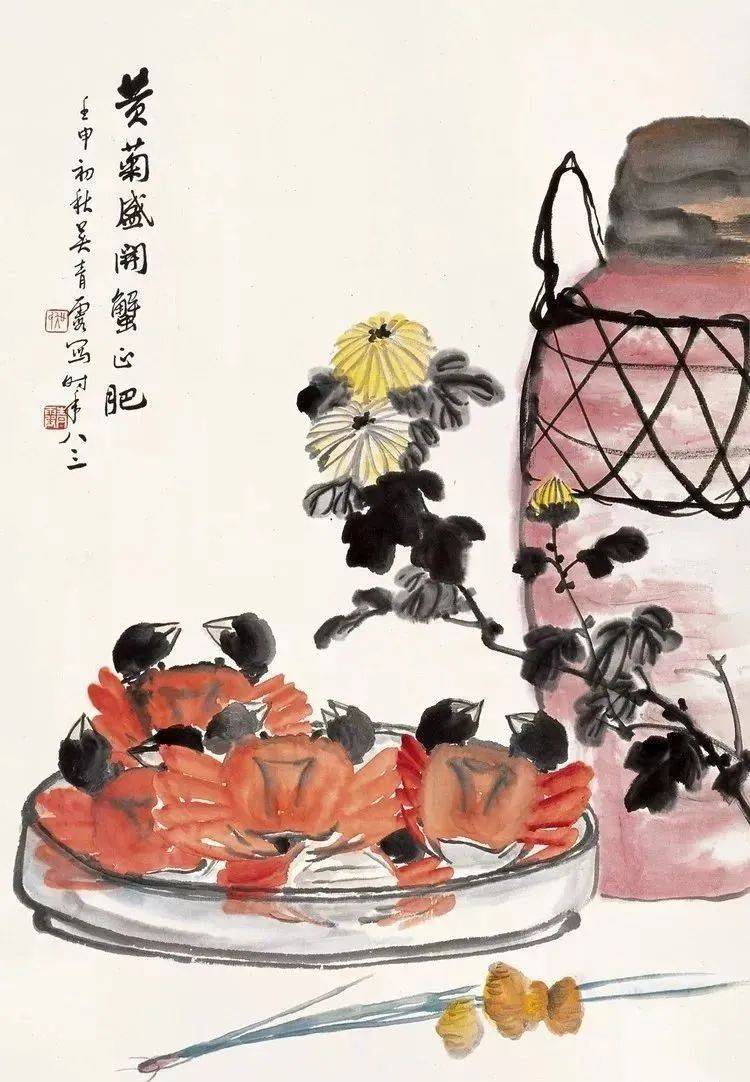 黄菊盛開蟹正肥
壬申初秋吴青霞寫时年八三